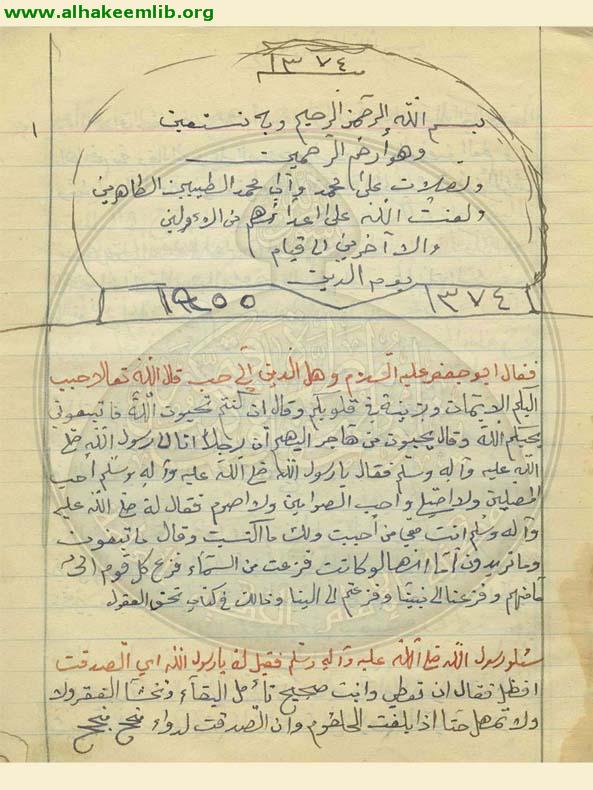 www.alhakeemlib.org
١٣٧٤
١
بسم اللّه الرحمن الرحيم وبه نستعين
وهو ارحم الرحمين
ولصلات على محمد وآلي محمد الطيبين الطاهرين
ولعنت اللّه على اعدائهم من الاولين
والاآخرين الى قيام
يوم الدين
١٩٥٥ ١٣٧٤
فقال ابو جعفر عليه السلام وهل الدين إلى حب قال اللّه تعالا حبب
اليكم الايمان وزينة في قلوبكم وقال ان كنتم تحبون اللّه فاتبعوني
يحبكم اللّه وقال يحبون من هاجر اليهم أن رجلاً اتا لى رسول اللّه صلى
اللّه عليه وآله وسلم فقال يا رسول اللّه صلى اللّه عليه وآله وسلم أحب
المصلين ولا اصلي واحب الصوامين ولا اصوم فقال له صلى اللّه عليه
وآله وسلم انت مع من احببت ولك ما اكتسبت وقال ما تبغون
وما تريدون أما انها لو كانت فزعت من السماء فزع كل قوم الى
مأمنهم وفزعنا لى نبينا وفزعتم الى الينا وذالك في كتاب تحف العقول
سئلو رسول اللّه صلى اللّه عليه وآله وسلم فقيل له يا رسول اللّه اي الصدقت
افظل فقال ان تعطي وانت صحيح تأمل البقآء وتخشا الفقر ولا
ولا تمهل حتا اذا بلغت الحلقوم وان الصدقت لدواء منجح منجح